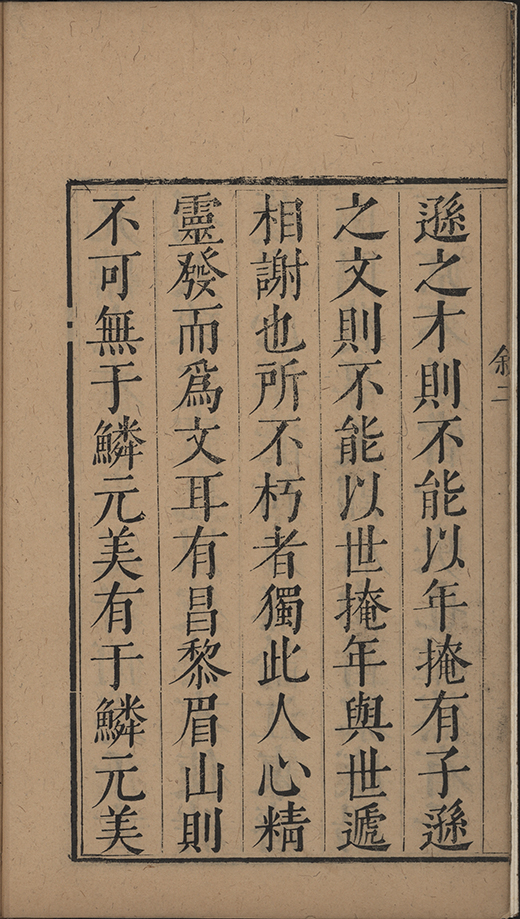 敘二
遜之才則不能以年掩有子遜
之文則不能以世掩年與世遞
相謝也所不朽者獨此人心精
靈發而爲文耳有昌黎眉山則
不可無于鱗元美有于鱗元美